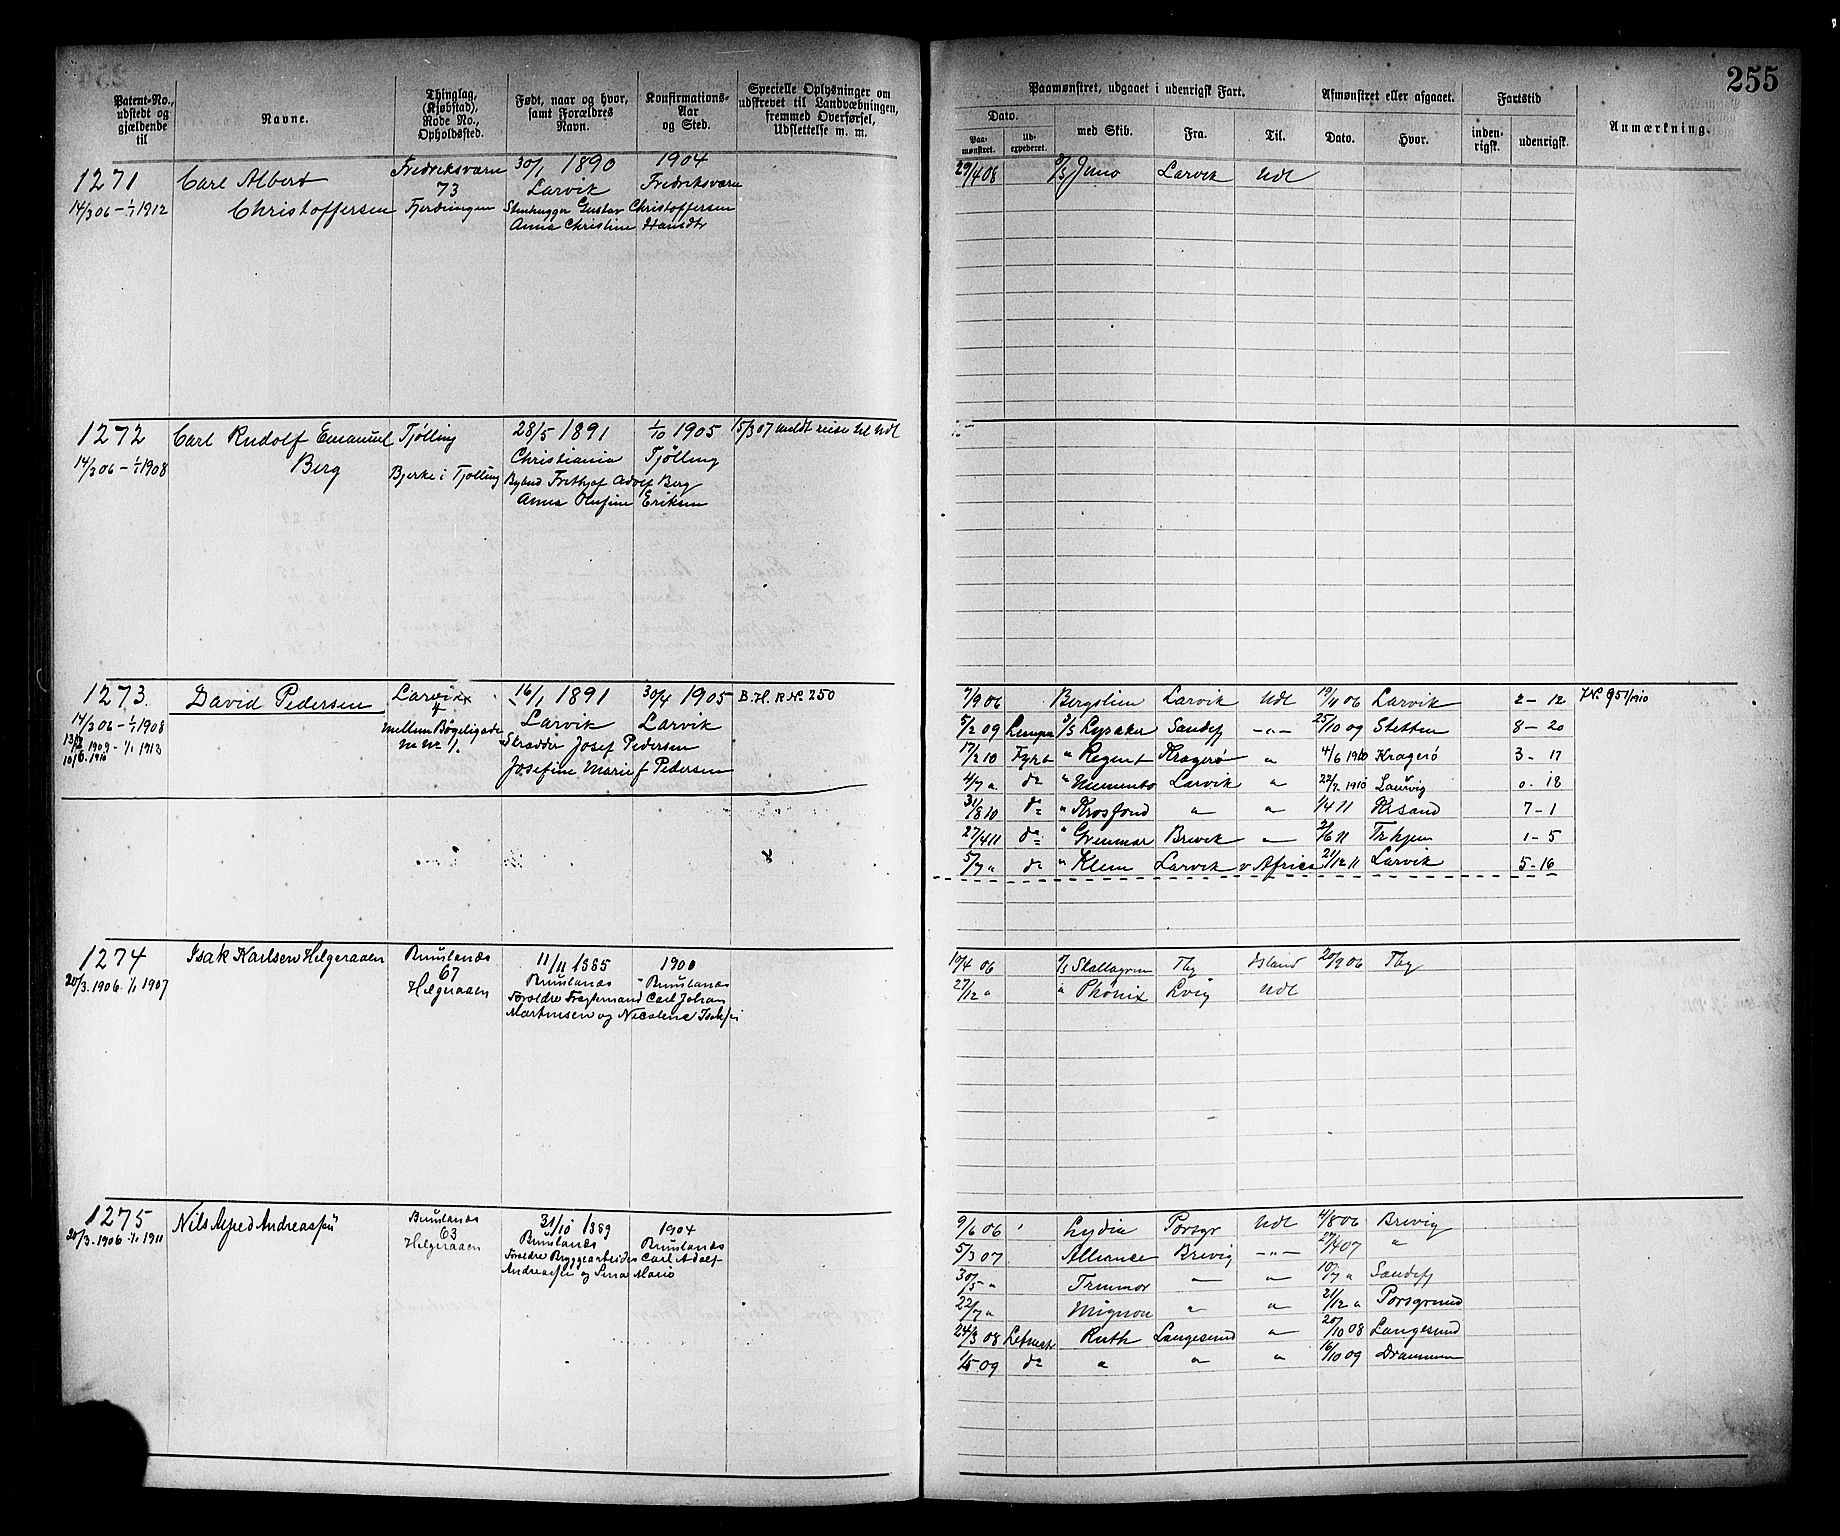 255
Patent-No., udstedt og gjældende til
Navne.
Thinglag, (Kjøbstad), Rode No., Opholdssted.
Født, naar og hvor, samt Forældres Navn.
Konfirmations- Aar og Sted.
Specielle Oplysninger om udskrevet til Landvæbningen, fremmed Overførsel, Udslettelse m. m.
Paamønstret, udgaaet i udenrigsk Fart.
Dato.
Paa- mønstret.
Ud- expederet.
med Skib.
Fra.
Til.
Afmønstret eller afgaaet.
Dato.
Hvor.
Fartstid
inden- rigsk.
udenrigsk.
Anmærkning.
1271 Carl Albert Fredriksværn 30/1 1890 1904
73 Larvik Fredriksværn
14/3 06 – 1/1 1912 Christoffersen Stenhugger Gustav Christoffersen
Anna Christine Hansdtr
29/4 08 Juno Larvik Udl
1272 Carl Rudolf Emanuel Tjølling 28/5 1891 1/10 1905 15/3 07 meldt reise til Udl
14/3 06 – 1/1 1908 Berg Bjerke i Tjølling Christiania Tjølling
Frithjof Adolf Berg
Anna Olufine Eriksen
1273. David Pedersen Larvik 16/1 1891 30/4 1905 B.H. R.No. 250
4
14/3 06 – 1/1 1908 mellem Bøgeligade Larvik Larvik
10/6. 1910 – 1/1 1913 Skrædder Josef Pedersen
Josefine Marie f Pedersen
7/9 06 Bergslien Larvik Udl 19/11 06 Larvik 2 – 12 J.No 951/1910
5/2 09 Lempr Lysaker Sandefj –〃– 25/10 09 Stettin 8 – 20
17/2 10 Fyrb 〃 Regent Kragerø 〃 4/6 1910 Kragerø 3 - 17
4/7 〃 do 〃 Memento Larvik 〃 22/7 1910 Laurvig 0 - 18
31/8 10 do 〃 Krosfond 〃 〃 1/4 11 Krsand 7 - 1
27/4 11 do 〃 Gunmar Brevik 〃 2/6 11 Trhjem 1 - 5
5/7 〃 do 〃 Klem Larvik v Africa 21/12 11 Larvik 5 - 16
1274 Isak Karlsen Helgeraaen Brunlanæs 11/11 1885 1900
20/3. 1906. 1/1 1907 67 Brunlanæs Brunlanæs
Helgeraaen Forældre Fragtemand Carl Johan
Martinsen og Nicoline Isaksen
10/4 06 Skallagrim Tbg Island 20/9 06 Tbg
27/12 〃 〃 Phønix Lvig Udl
1275 Nils Alfred Andreassen Brunlanæs 31/10 1889 1904
20/3. 1906 1/1 1911 63 Brunlanæs Brunlanæs
Helgeraaen Forældre Bryggearbeider Carl Adolf
Andreassen og Sina Marie
9/6 06 Lydia Porsgr Udl 4/8 06 Brevig
5/3 07 Alliance Brevig –〃– 27/4 07 〃
30/5 〃 Trummor 〃 〃 10/7 〃 Sandefj
22/7 〃 Mignon 〃 〃 21/12 〃 Porsgrund
24/3 08 Letmatr Ruth Langesund 〃 20/10 08 Langesund
1/5 09 do 〃 〃 〃 16/10 09 Drammen